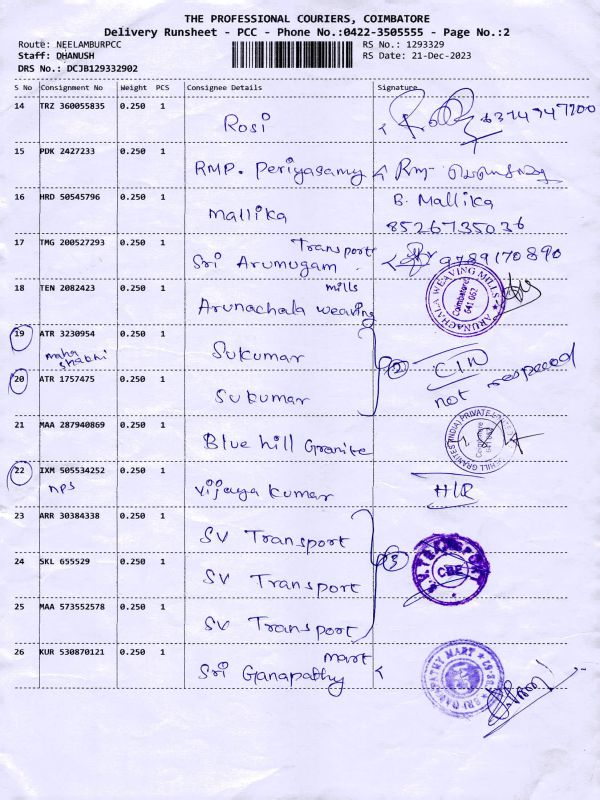 THE PROFESSIONAL COURIERS, COIMBATORE
Delivery Runsheet - PCC - Phone No.:0422-3505555 - Page No.:2
Route: NEELAMBURPCC
RS No.: 1293329
Staff: DHANUSH
RS Date: 21-Dec-2023
DRS No.: DCJB129332902
S No Consignment No Weight PCS Consignee Details Signature
14 TRZ 360055835 0.250 1 Rosi 6374747200
15 PDK 2427233 0.250 1 RMP. Periyasamy
16 HRD 50545796 0.250 1 Mallika B. Mallika
8526735036
17 TMG 200527293 0.250 1 Sri Arumugam Transport 9789170890
18 TEN 2082423 0.250 1 Arunachala weaving mills
ARUNACHALA WEAVING MILLS
Coimbatore
641 062
19 ATR 3230954 0.250 1 Sukumar
maha shabhi
(2)
not
20 ATR 1757475 0.250 1 Sukumar
21 MAA 287940869 0.250 1 Blue hill Granite
22 IXM 505534252 0.250 1 Vijaya kumar
NPS
23 ARR 30384338 0.250 1 SV Transport
24 SKL 655529 0.250 1 SV Transport
(3)
S.V. TRANSPORT
CBE
25 MAA 573552578 0.250 1 SV Transport
26 KUR 530870121 0.250 1 Sri Ganapathy mart
SRI GANAPATHY MART